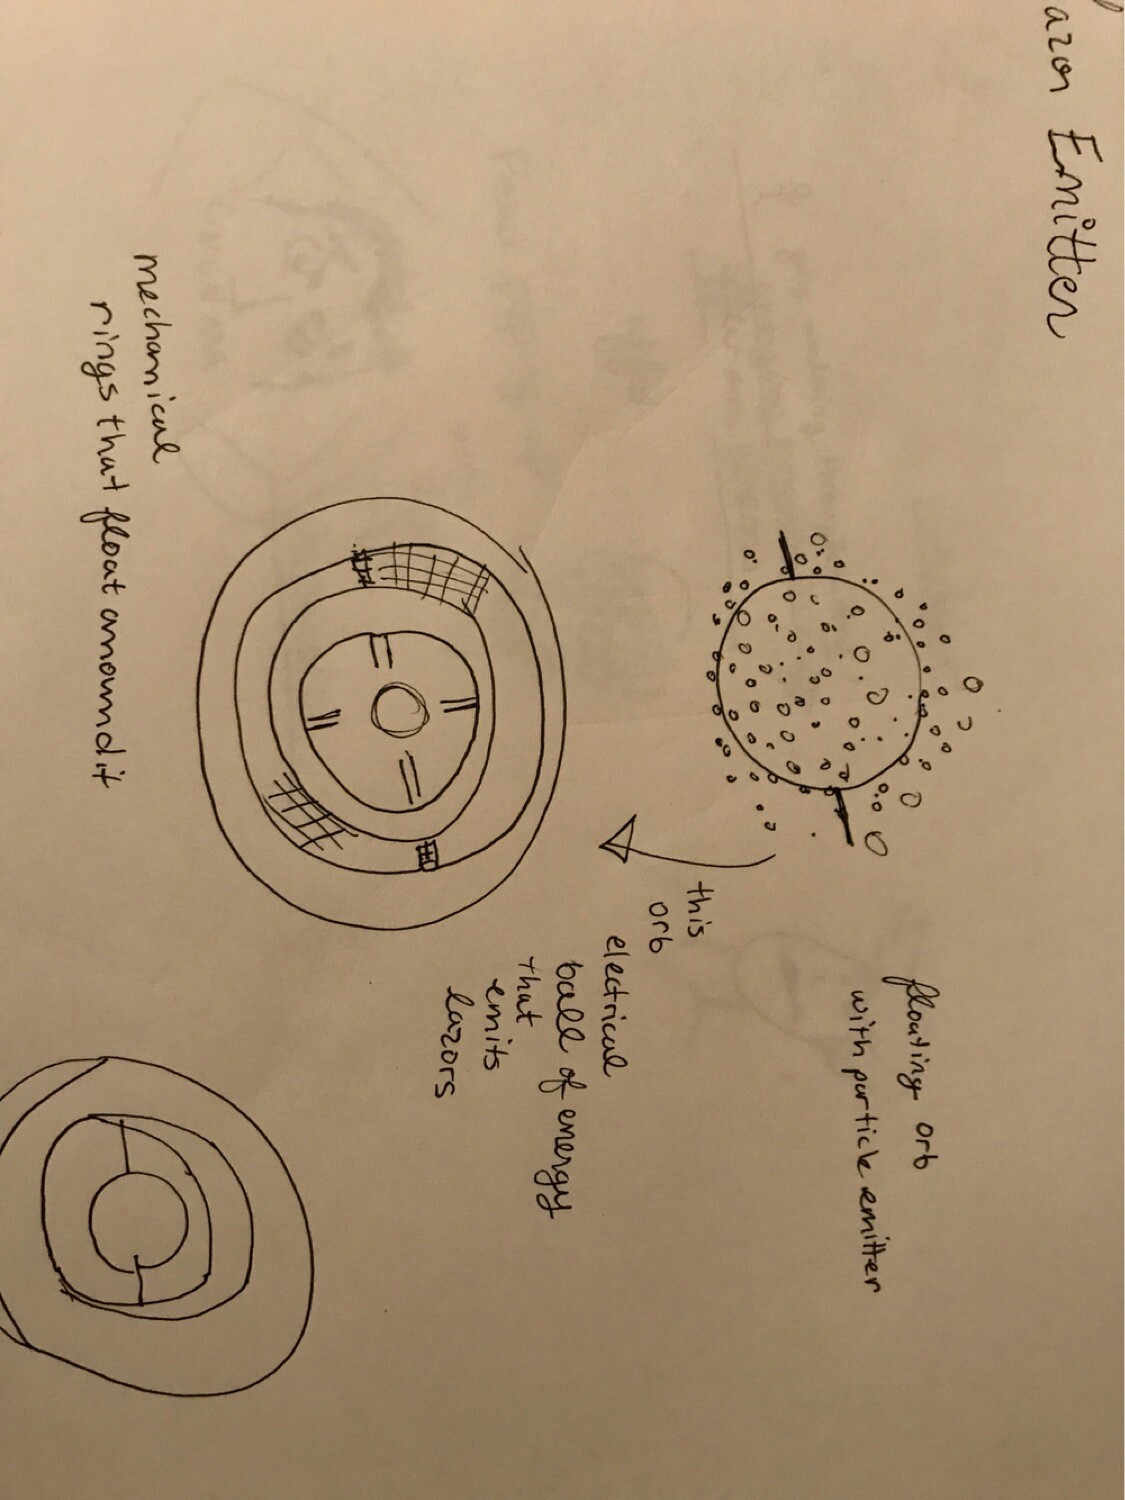 Lazor Emitter
floating orb
with particle emitter
this
orb
electrical
ball of energy
that
emits
lazors
mechanical
rings that float around it